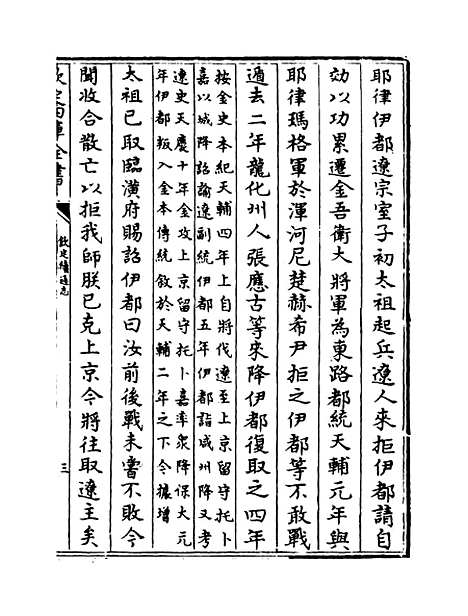 耶律伊都遼宗室子初太祖起兵遼人來拒伊都請自
効以功累遷金吾衛大將軍為東路都統天輔元年與
耶律瑪格軍於渾河尼楚赫希尹拒之伊都等不敢戰
遁去二年龍化州人張應古等來降伊都復取之四年
按金史本紀天輔四年上自將伐遼至上京留守托卜
嘉以城降詔諭遼副統伊都五年伊都詣咸州降又考
遼史天慶十年金攻上京留守托卜嘉率衆降保大元
年伊都叛入金本傳統敘於天輔二年之下今據增
太祖已取臨潢府賜詔伊都曰汝前後戰未嘗不敗今
聞收合散亡以拒我師朕已克上京今將往取遼主矣
欽定四庫全書
欽定續通志
三